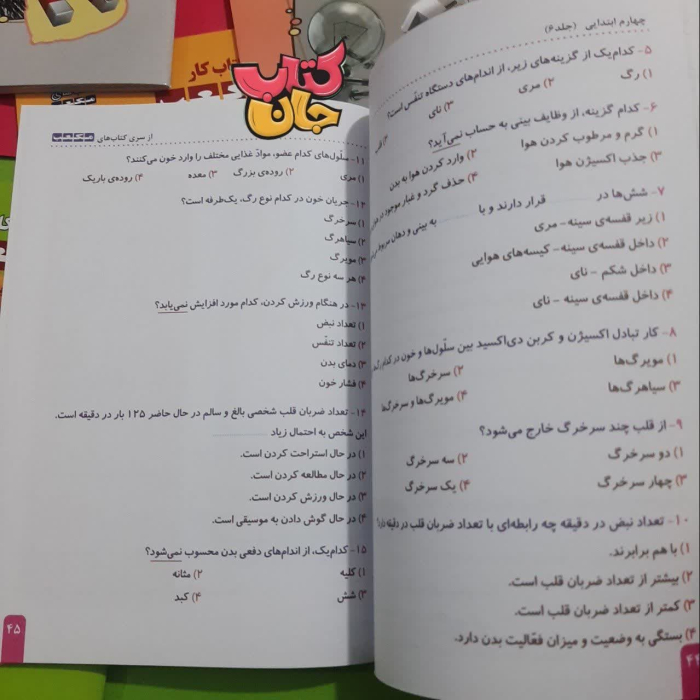 کتاب جان
کتاب کار
چهارم ابتدایی (جلد ۶)
۵- کدام‌یک از گزینه‌های زیر، از اندام‌های دستگاه تنفّس است؟
۱) رگ ۲) مری ۳) نای ۴)
۶- کدام گزینه، از وظایف بینی به حساب نمی‌آید؟
۱) گرم و مرطوب کردن هوا ۲) وارد کردن هوا به بدن
۳) جذب اکسیژن هوا ۴) حذف گرد و غبار موجود در
۷- شش‌ها در ........ قرار دارند و با ........ به بینی و دهان مربوط
۱) زیر قفسه‌ی سینه - مری
۲) داخل قفسه‌ی سینه - کیسه‌های هوایی
۳) داخل شکم - نای
۴) داخل قفسه‌ی سینه - نای
۸- کار تبادل اکسیژن و کربن دی‌اکسید بین سلّول‌ها و خون در کدام
۱) مویرگ‌ها ۲) سرخرگ‌ها
۳) سیاهرگ‌ها ۴) مویرگ‌ها و سرخرگ‌ها
۹- از قلب چند سرخرگ خارج می‌شود؟
۱) دو سرخرگ ۲) سه سرخرگ
۳) چهار سرخرگ ۴) یک سرخرگ
۱۰- تعداد نبض در دقیقه چه رابطه‌ای با تعداد ضربان قلب در دقیقه دارد؟
۱) با هم برابرند.
۲) بیشتر از تعداد ضربان قلب است.
۳) کمتر از تعداد ضربان قلب است.
۴) بستگی به وضعیت و میزان فعّالیت بدن دارد.
۴۴
از سری کتاب‌های
۱۱- سلّول‌های کدام عضو، موادّ غذایی مختلف را وارد خون می‌کنند؟
۱) مری ۲) روده‌ی بزرگ ۳) معده ۴) روده‌ی باریک
۱۲- جریان خون در کدام نوع رگ، یک‌طرفه است؟
۱) سرخرگ
۲) سیاهرگ
۳) مویرگ
۴) هر سه نوع رگ
۱۳- در هنگام ورزش کردن، کدام مورد افزایش نمی‌یابد؟
۱) تعداد نبض
۲) تعداد تنفّس
۳) دمای بدن
۴) فشار خون
۱۴- تعداد ضربان قلب شخصی بالغ و سالم در حال حاضر ۱۲۵ بار در دقیقه است.
این شخص به احتمال زیاد ........
۱) در حال استراحت کردن است.
۲) در حال مطالعه کردن است.
۳) در حال ورزش کردن است.
۴) در حال گوش دادن به موسیقی است.
۱۵- کدام‌یک، از اندام‌های دفعی بدن محسوب نمی‌شود؟
۱) کلیه ۲) مثانه
۳) شش ۴) کبد
۴۵